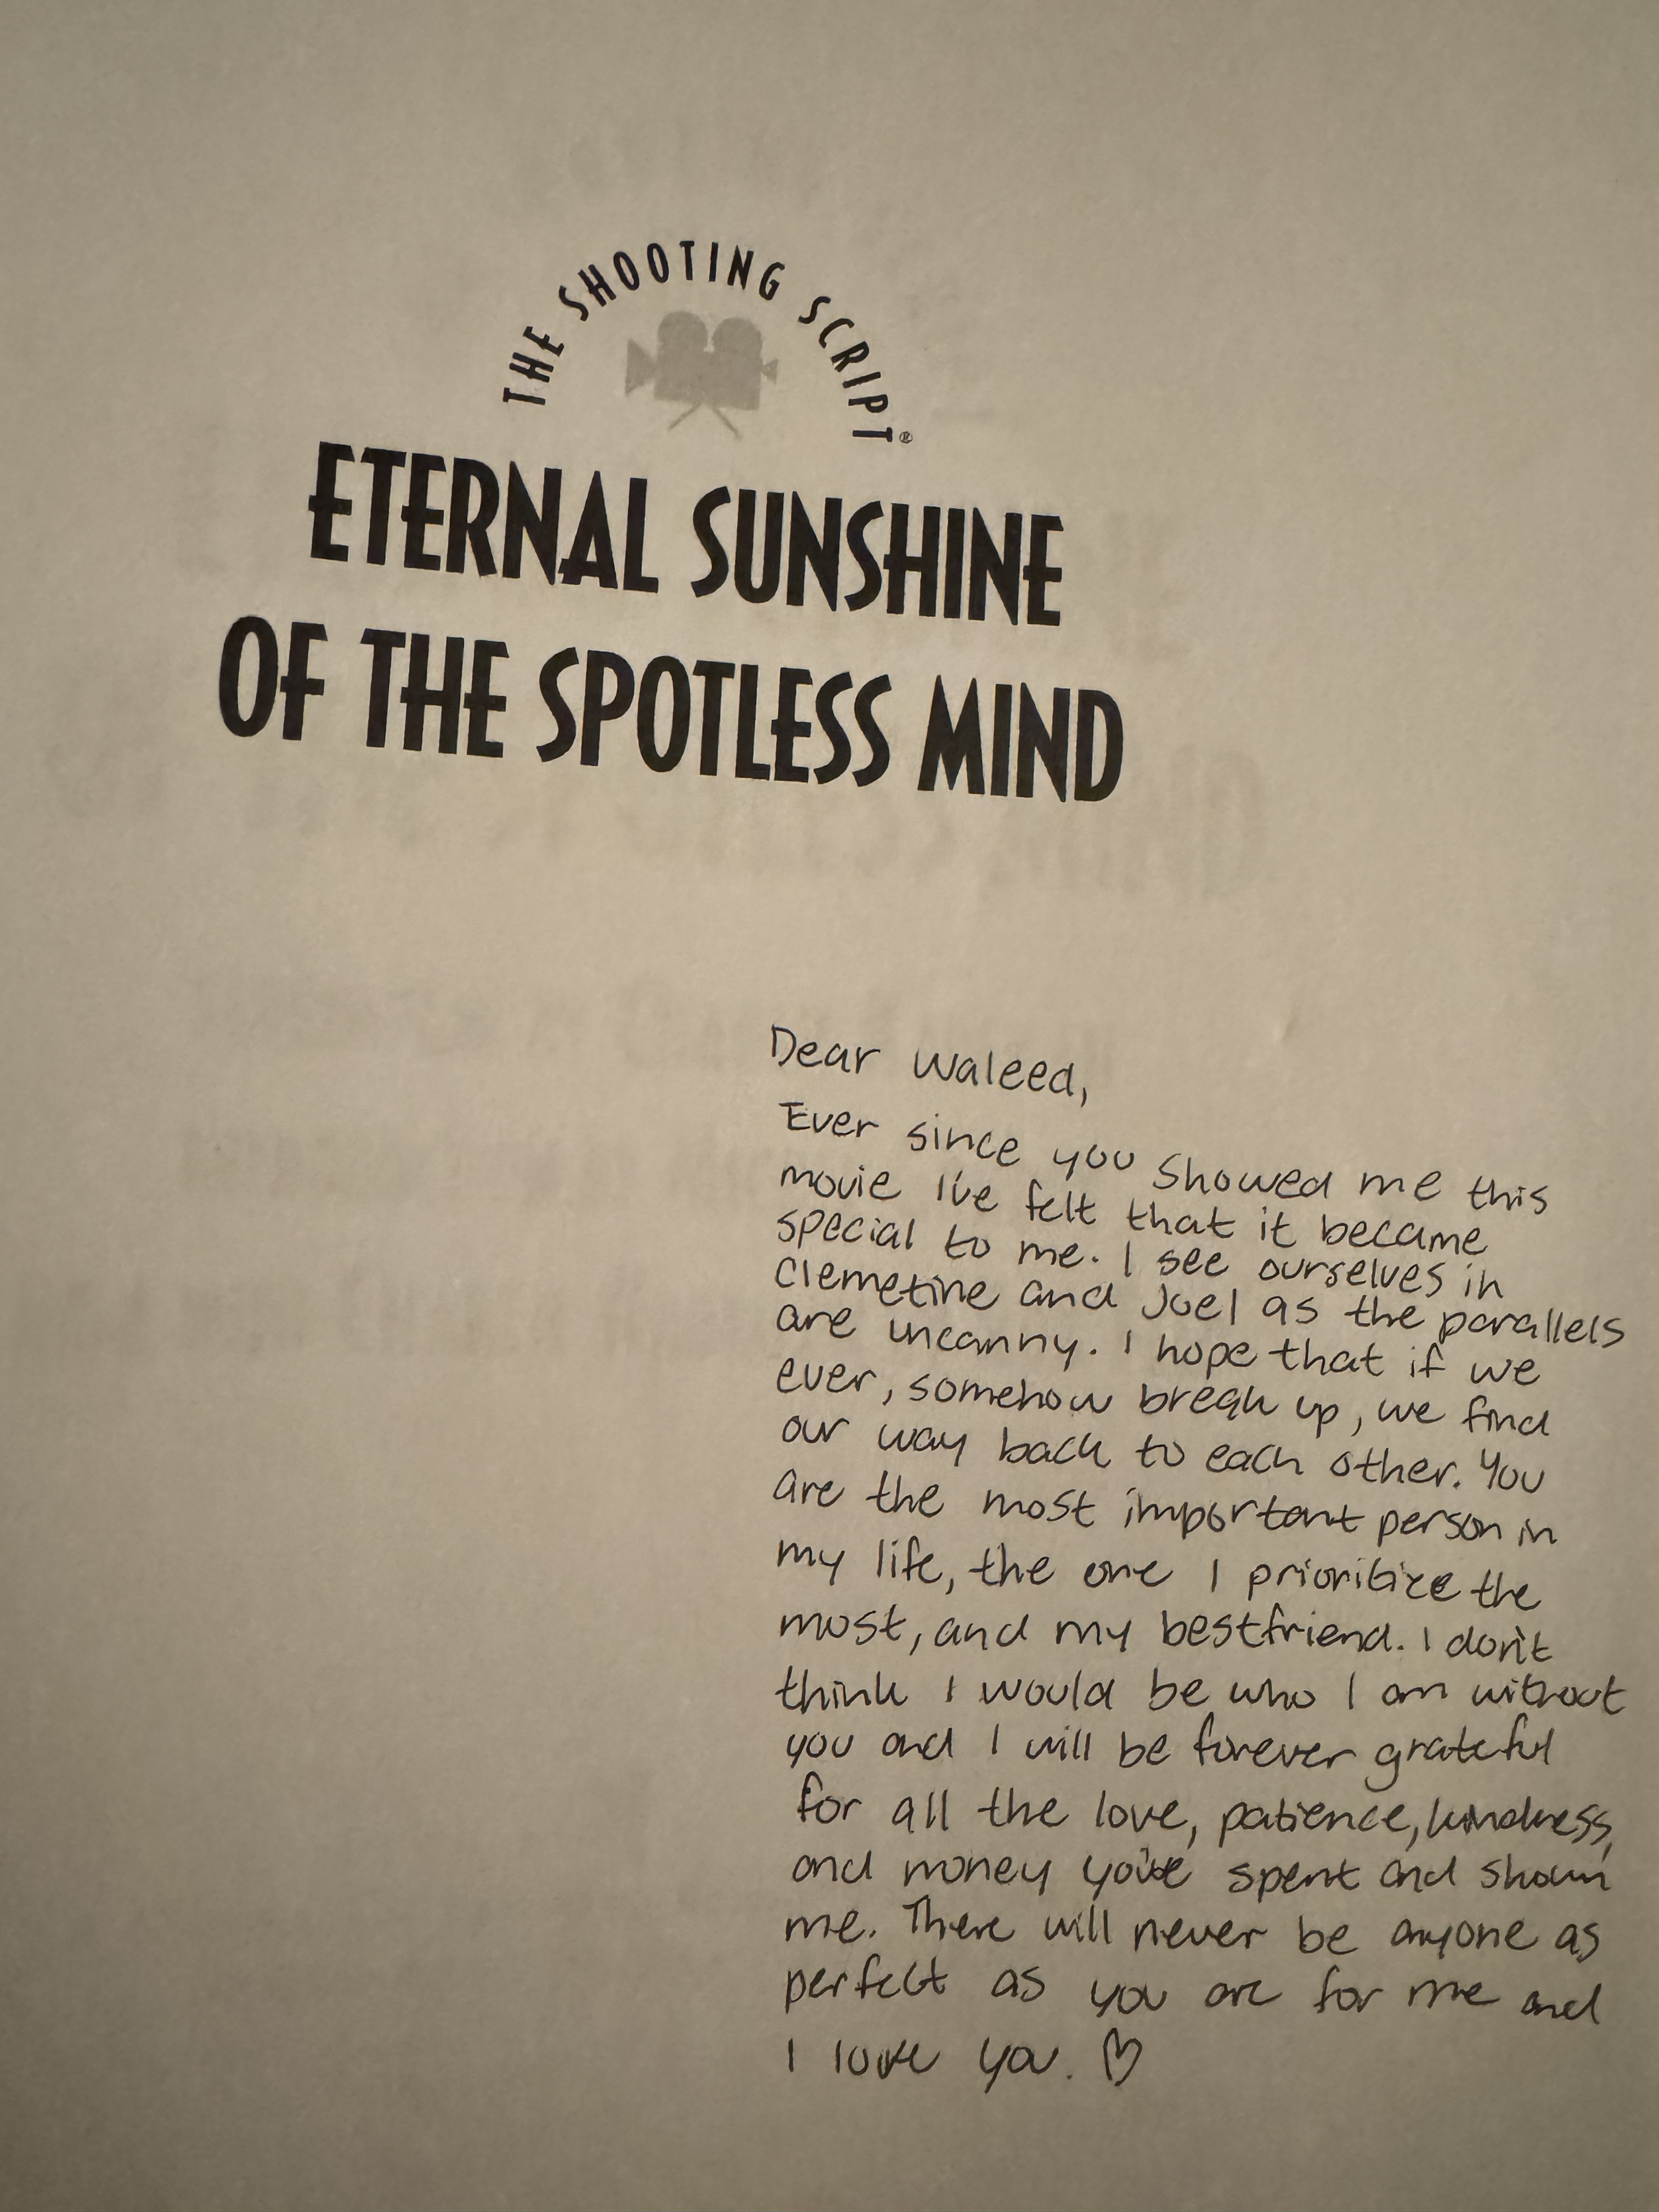 THE SHOOTING SCRIPT®
ETERNAL SUNSHINE
OF THE SPOTLESS MIND
Dear Waleed,
Ever since you showed me this
movie I've felt that it became
special to me. I see ourselves in
Clemetine and Joel as the parallels
are uncanny. I hope that if we
ever, somehow break up, we find
our way back to each other. You
are the most important person in
my life, the one I prioritize the
most, and my bestfriend. I don't
think I would be who I am without
you and I will be forever grateful
for all the love, patience, kindness,
and money you've spent and shown
me. There will never be anyone as
perfect as you are for me and
I love you. ♡